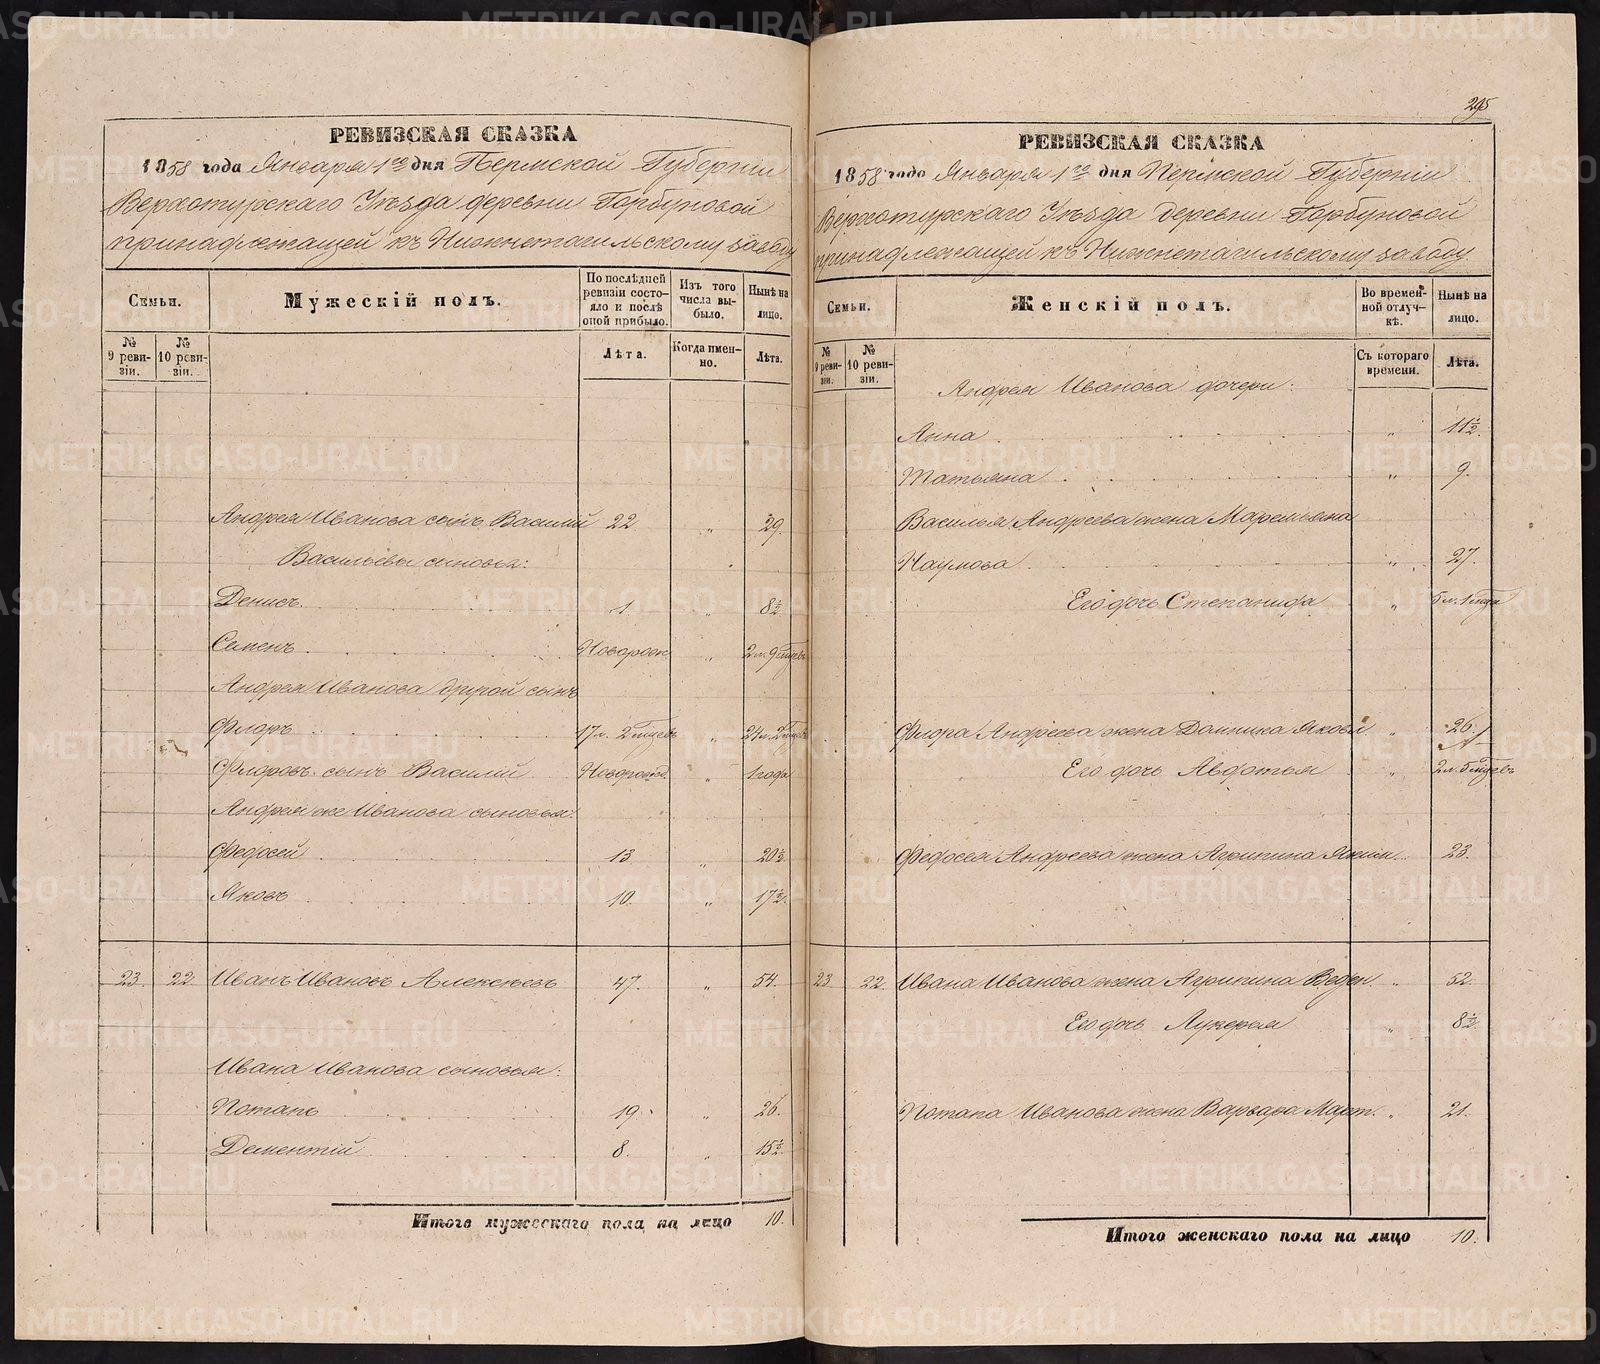 295
РЕВИЗСКАЯ СКАЗКА
1858 года Января 1го дня Пермской Губернии
Верхотурскаго Уѣзда деревни Горбуновой
принадлежащей къ Нижнетагильскому заводу
Семьи.
Мужескій полъ.
По послѣдней ревизіи состояло и послѣ оной прибыло.
Изъ того числа выбыло.
Нынѣ на лицо.
№ 9 ревизіи.
№ 10 ревизіи.
Лѣта.
Когда именно.
Лѣта.
Андрея Иванова сынъ Василій 22 " 29.
Васильевы сыновья:
Денисъ. 1 " 8½
Семенъ Новорожд. " 2 л. 9 мцевъ
Андрея Иванова другой сынъ
Флоръ 17 л. 2 мцевъ " 24 л. 2 мцевъ
Флоровъ сынъ Василій Новорожд. " 1 года
Андрея же Иванова сыновья:
Федосей 13 " 20½
Яковъ 10. " 17½
23. 22. Иванъ Ивановъ Алексѣевъ 47. " 54.
Ивана Иванова сыновья:
Потапъ 19. " 26.
Дементій 8. " 15½
Итого мужескаго пола на лицо 10.
РЕВИЗСКАЯ СКАЗКА
1858 года Января 1го дня Пермской Губерніи
Верхотурскаго Уѣзда деревни Горбуновой
принадлежащей къ Нижнетагильскому заводу
Семьи.
Женскій полъ.
Во временной отлучкѣ.
Нынѣ на лицо.
№ 9 ревизіи.
№ 10 ревизіи.
Съ котораго времени.
Лѣта.
Андрея Иванова дочери:
Анна " 11½
Татьяна " 9.
Василья Андреева жена Маремьяна
Наумова " 27.
Его дочь Степанида " 5 л. 1 мца
Флора Андреева жена Домника Яковл " 26.
Его дочь Авдотья " 2 л. 5 мцевъ
Федосея Андреева жена Агрипина Яким. 23.
23 22. Ивана Иванова жена Агрипина Веден. " 52.
Его дочь Лукерья " 8½
Потапа Иванова жена Варвара Март. " 21.
Итого женскаго пола на лицо 10.
METRIKI.GASO-URAL.RU